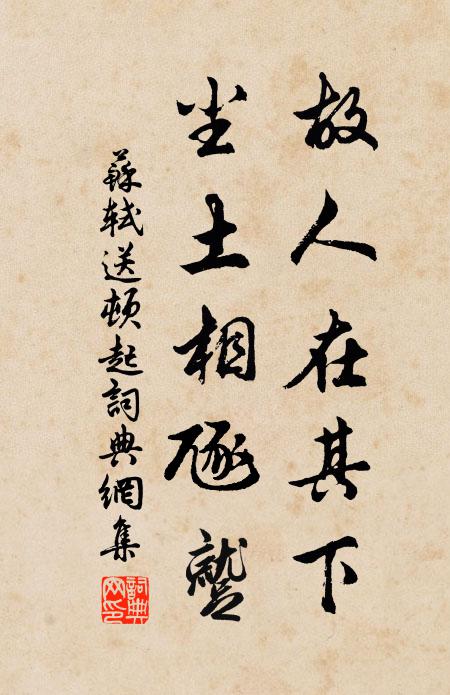 故人在其下
尘土相豗蹵
蘇軾送頓起詞典網集
詞典網印